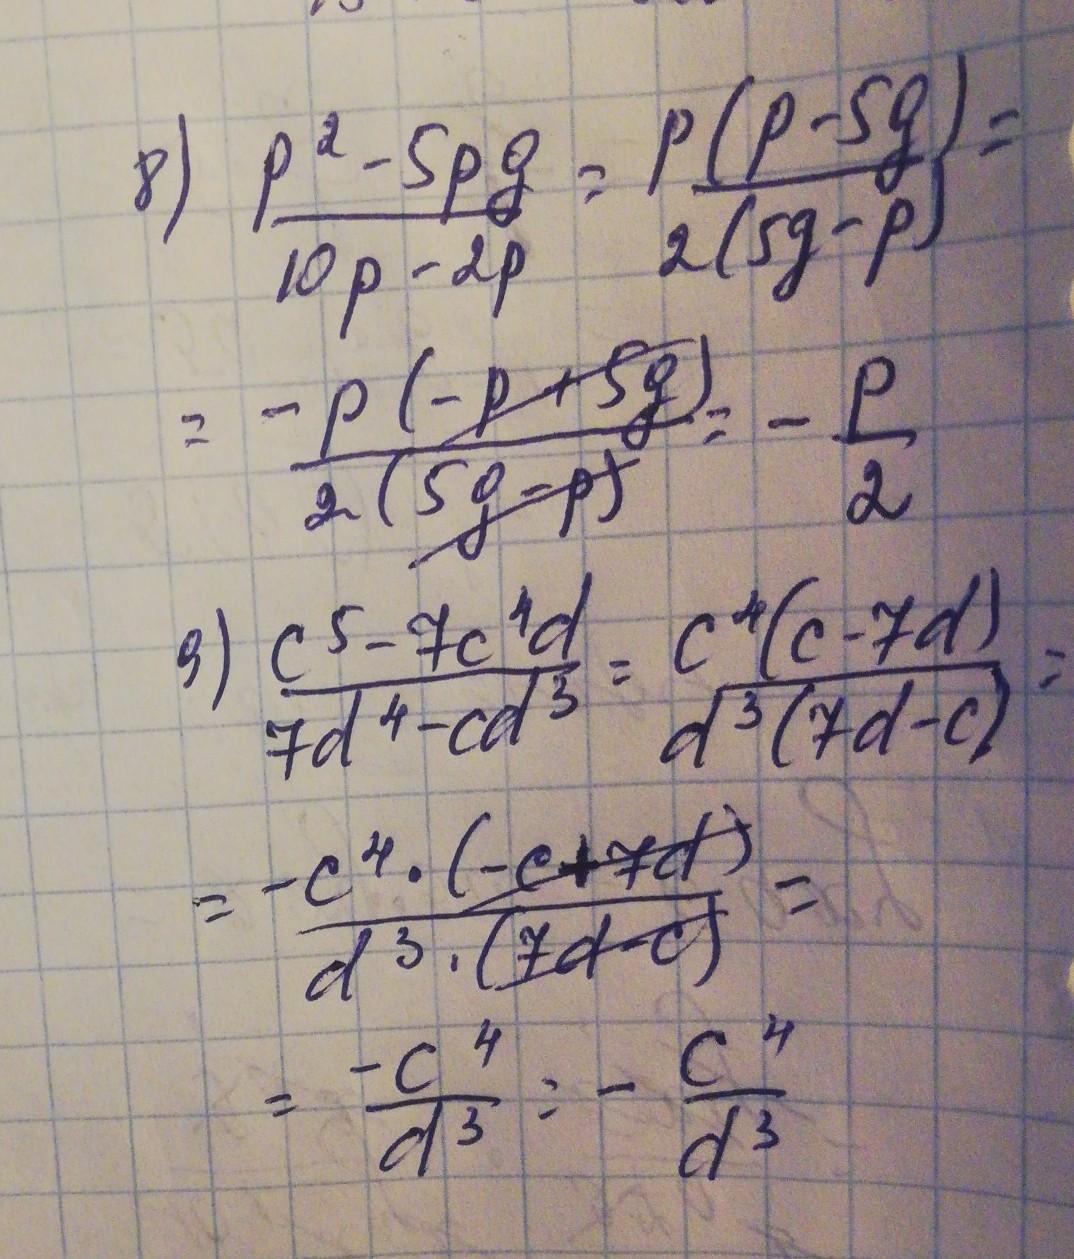 8) (p² - 5pg)/(10p - 2p) = p(p - 5g)/2(5g - p) =
= -p(-p + 5g)/2(5g - p) = - p/2
9) (c⁵ - 7c⁴d)/(7d⁴ - cd³) = c⁴(c - 7d)/d³(7d - c) =
= -c⁴·(-c + 7d)/d³·(7d - c) =
= -c⁴/d³ = - c⁴/d³